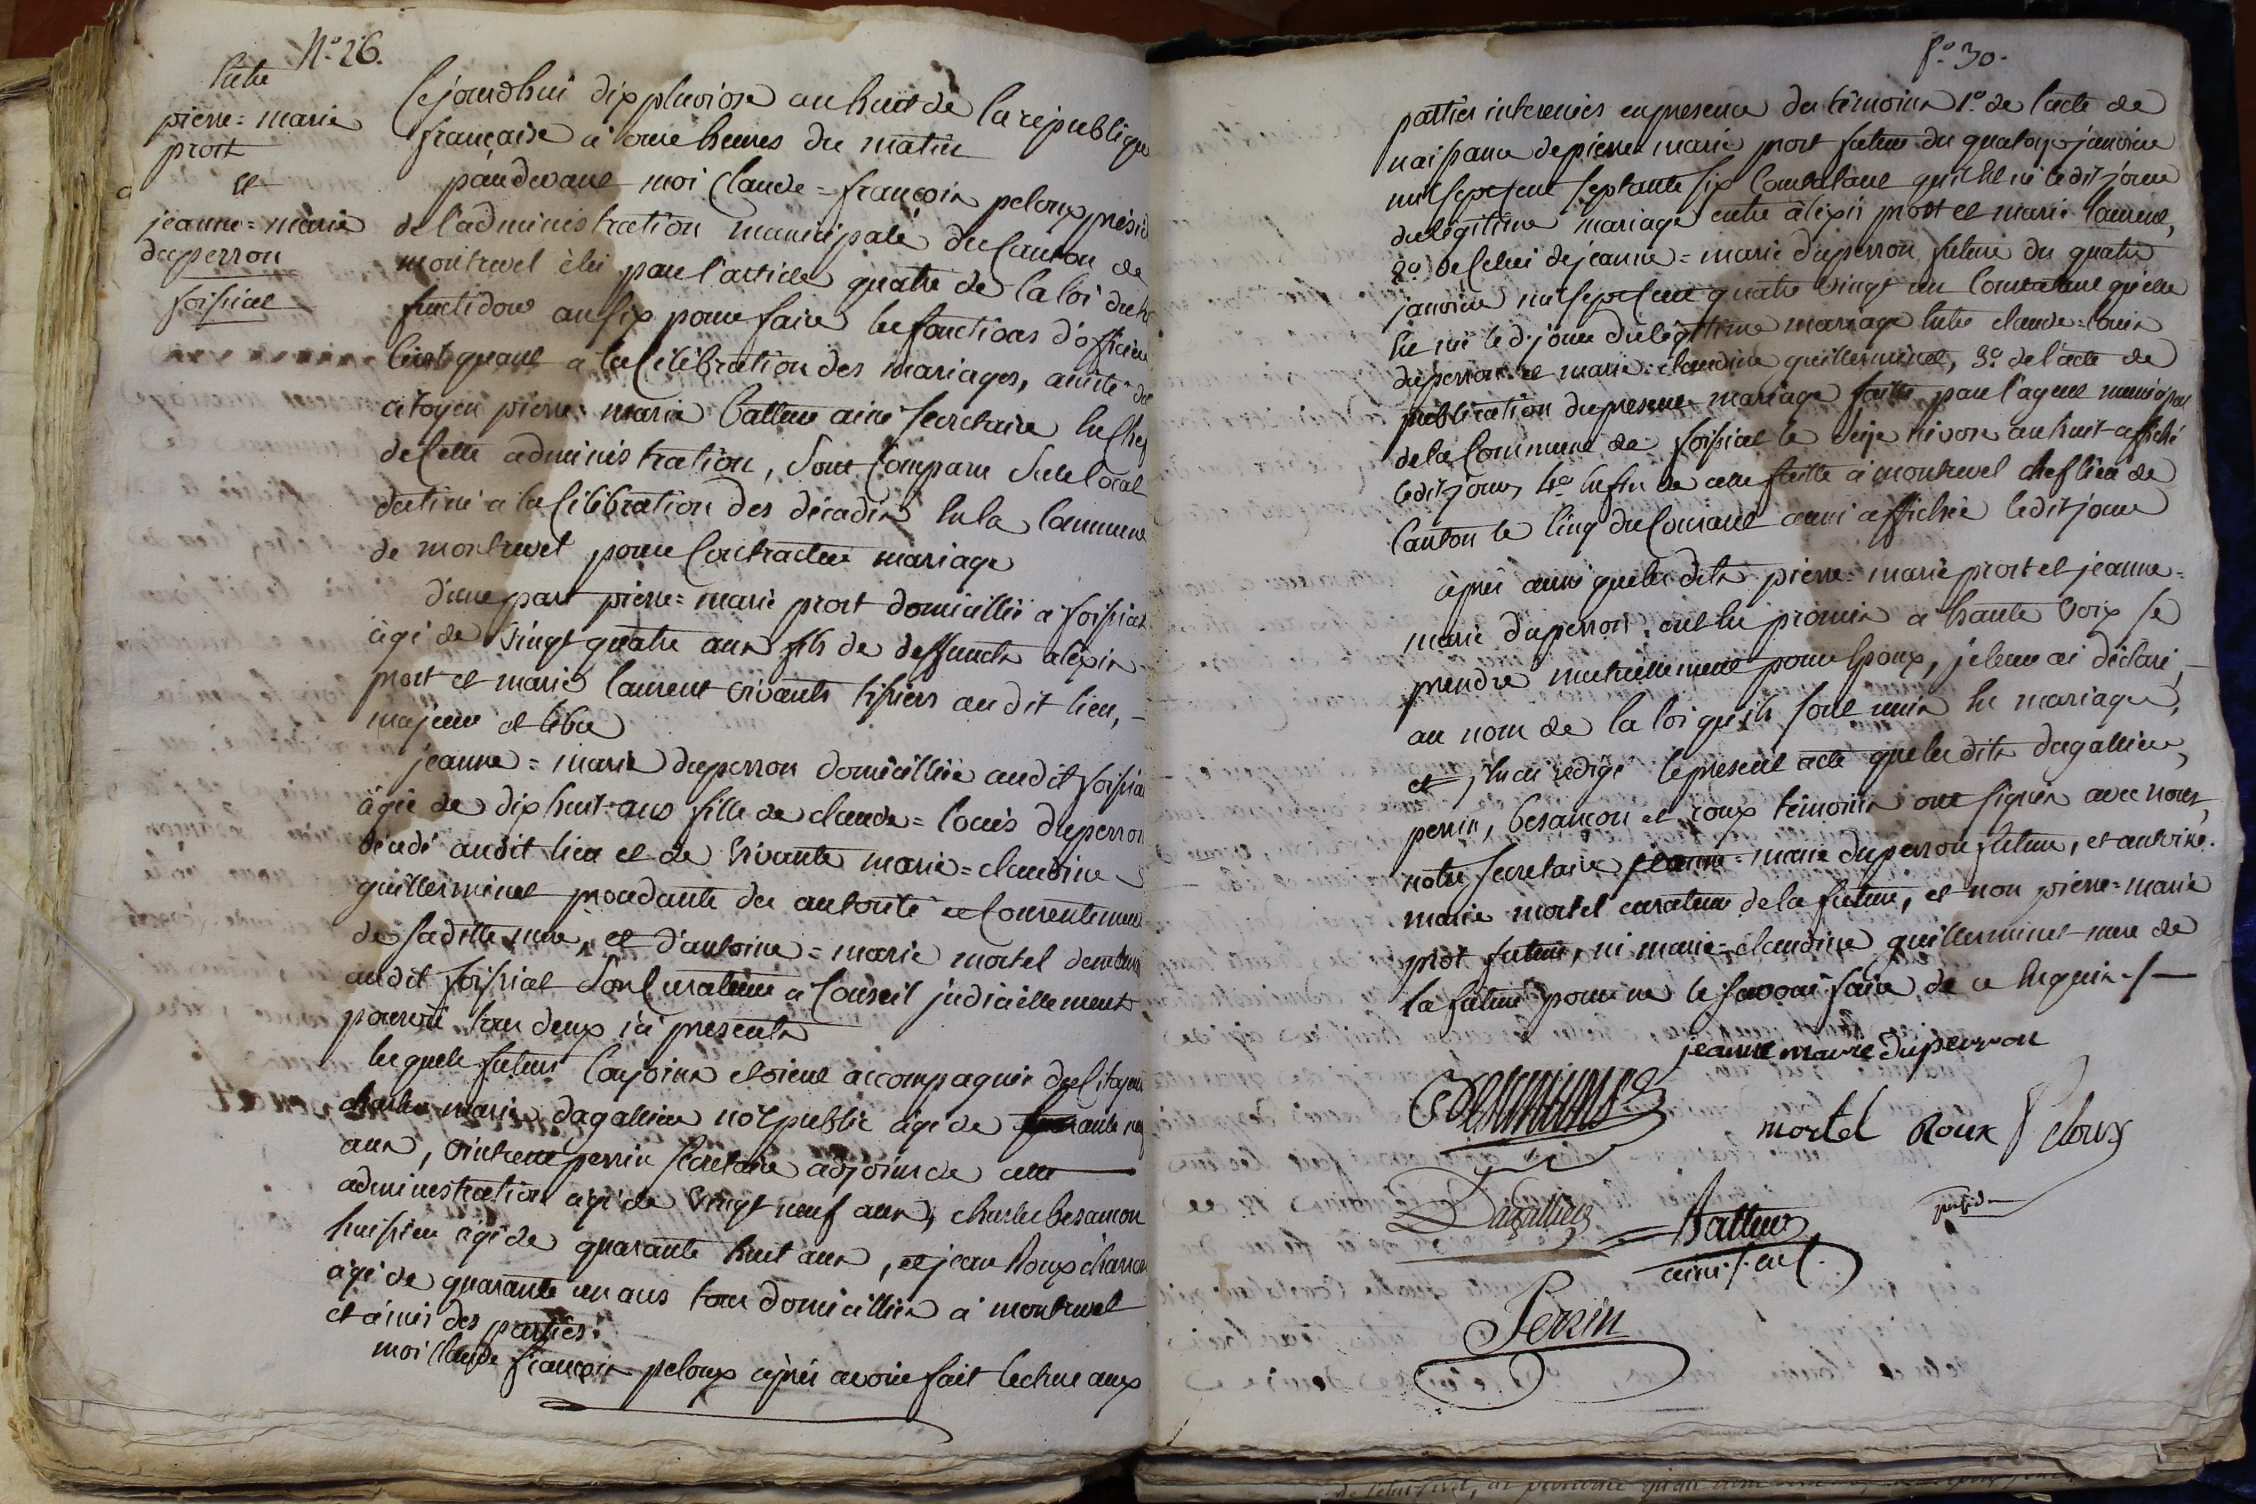 N.° 26.
Entre
pierre = marie
prost
et
jeanne = marie
duperron
foissiat
Cejourdhui dix pluviose an huit de la république
française à onze heures du matin
pardevant moi Claude = françois peloux présid
de l'administration municipale du Canton de
montrevel élu par l'article quatre de la loi du
fructidor an six pour faire les fonctions d'officier
Civil quant a la Célébration des mariages, assisté du
citoyen pierre = marie Batteur ainé secretaire en Chef
de Cette administration, Sont Comparu Sur le local
destiné a la Célébration des décadis en la Commune
de montrevel pour Contracter mariage
d'une part pierre = marie prost domicillié à foissiat
agé de Vingt quatre ans fils de deffuncts alexis
prost et marie laurent vivants tissiers audit lieu,
majeur et libre
jeanne = marie duperron domicilliée audit foissia
âgée de dix huit ans fille de claude = louis duperron
décédé audit lieu et de Vivante marie = claudine
guillerminet procedante des autorité et Consentement
de sadite mere, et d'antoine = marie mortel demeura
audit foissiat Son Curateur a Conseil judiciellement
pourvu tous deux ici présents
lesquels futurs Conjoins étoient accompagnés des Citoyens
charles marie dagallier not public agé de
ans, perrin secretaire adjoint de cette
administration agé de vingt neuf ans, charles besançon
huissier agé de quarante huit ans, et jean Roux charron
âgé de quarante un ans tous domicilliés a montrevel
et amis des parties.
moi Claude françois peloux après avoir fait lecture aux
f.° 30.
parties interessées en presence des témoins 1.° de l'acte de
naissance de pierre marie prost futur du quatorze janvier
mil sept cent septante six Constatant qu'il est né ledit jour
du légitime mariage entre aléxis prost et marie laurent,
2.° de Celui de jeanne = marie duperron future du quatre
janvier mil sept Cent quatre vingt un Constatant qu'elle
est née led. jour du légitime mariage entre claude = louis
duperron et marie = claudine guillerminet, 3.° de l'acte de
publication du present mariage faitte par l'agent municipal
de la Commune de foissiat le seize nivose an huit affiché
ledit jour, 4.° enfin de celle faitte a montrevel chef lieu de
Canton le Cinq du Courant aussi affichée ledit jour
après aussi que lesdits pierre = marie prost et jeanne =
marie duperron ont eu promis a haute voix se
prendre mutuellement pour Epoux, je leur ai déclaré,
au nom de la loi qu'ils sont unis en mariage,
et j'en ai redigé le present acte que lesdits dagallier,
perrin, besançon et roux témoins ont signés avec nous,
notre secretaire jeanne = marie duperron future, et antoine =
marie mortel curateur de la future, et non pierre = marie
prost futur, ni marie = claudine guillerminet mere de
la future pour ne le savoir faire de ce Enquis ./.
jeanne marie duperron
mortel Roux Peloux
présid.
Dagallier
Batteur
ainé S. en C.
Perrin